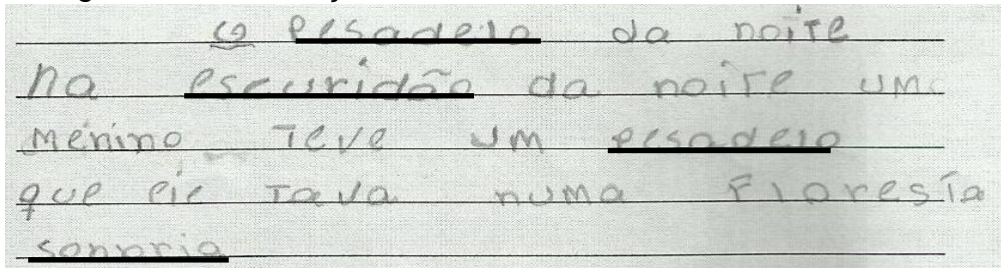 O pesadelo da noite
na escuridão da noite um
menino teve um pesadelo
que ele tava numa Floresta